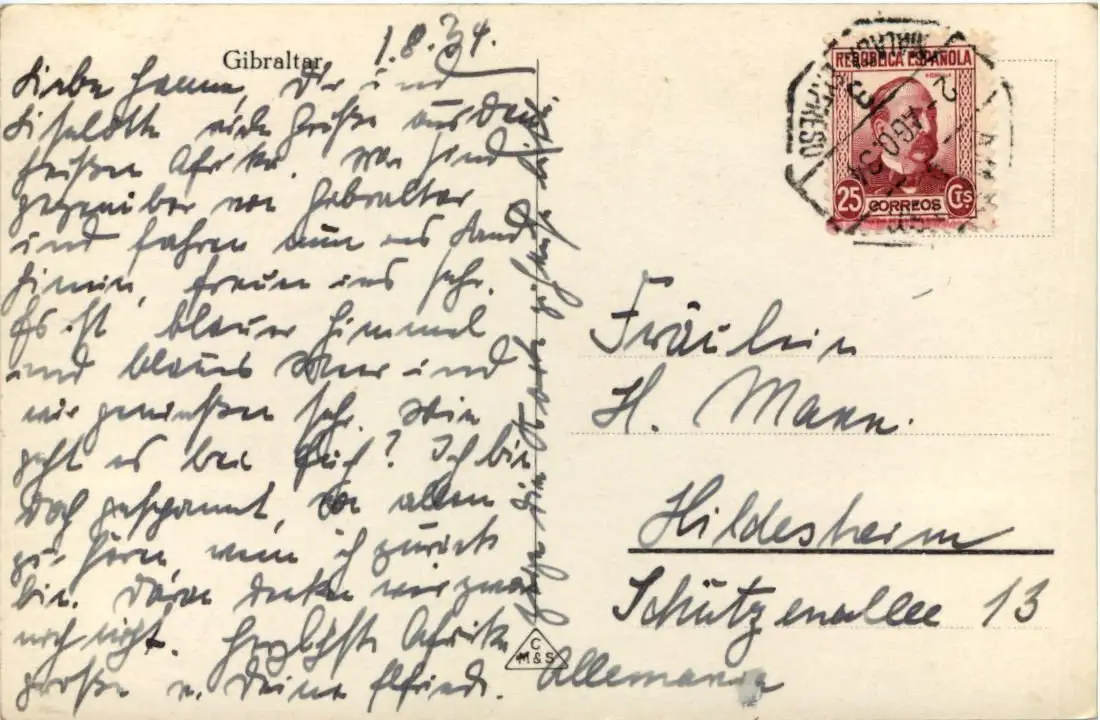 Gibraltar
1.8.34.
Liebe Hanne, Dir und
Liselotte viele Grüße aus dem
heißen Afrika. Wir sind
gegenüber von Gibraltar
und fahren nun ins Land
hinein, freuen uns sehr.
Es ist blauer Himmel
und blaues Meer und
wir genießen sehr. Wie
geht es bei Euch? Ich bin
doch gespannt, von allem
zu hören, wenn ich zurück
bin. Daran denken wir zwar
noch nicht. Herzlichste Afrika
grüße v. Deiner Elfriede.
die Karte
C
M&S
REPUBLICA ESPAÑOLA
25 CORREOS Cts
2 AGO. 34
Fräulein
H. Mann.
Hildesheim
Schützenallee 13
Allemania